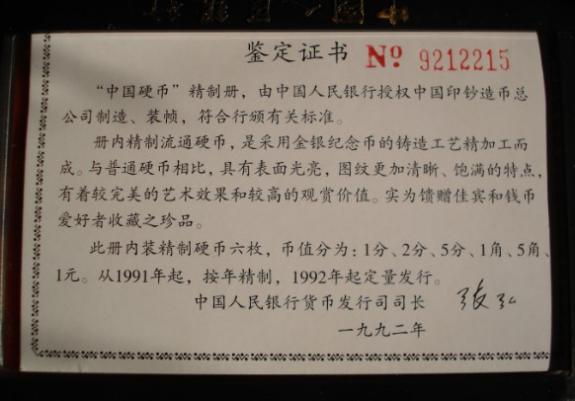 中国人民银行
鉴定证书 Nº 9212215
“中国硬币”精制册，由中国人民银行授权中国印钞造币总
公司制造、装帧，符合行颁有关标准。
册内精制流通硬币，是采用金银纪念币的铸造工艺精加工而
成。与普通硬币相比，具有表面光亮，图纹更加清晰、饱满的特点，
有着较完美的艺术效果和较高的观赏价值。实为馈赠佳宾和钱币
爱好者收藏之珍品。
此册内装精制硬币六枚，币值分为：1分、2分、5分、1角、5角、
1元。从1991年起，按年精制，1992年起定量发行。
中国人民银行货币发行司司长 张弘
一九九二年